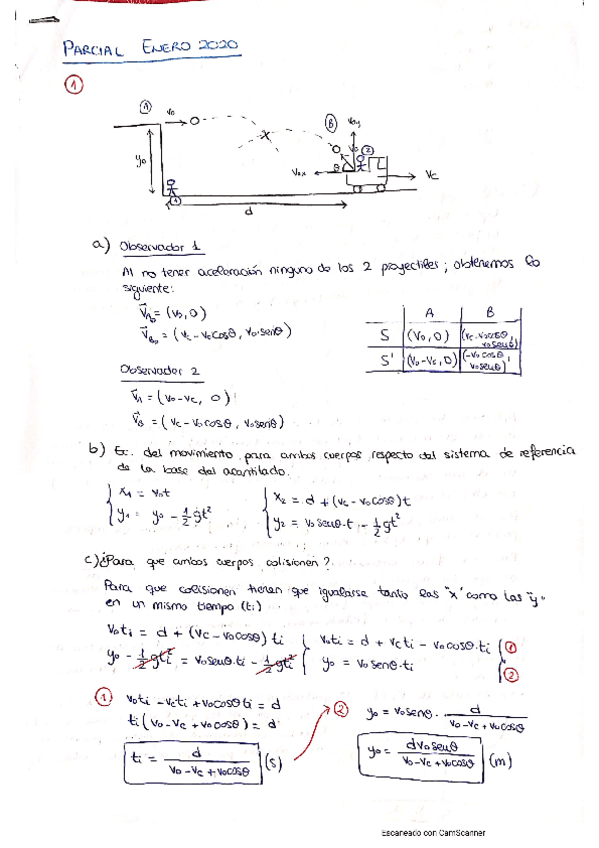 PARCIAL ENERO 2020
①
Ⓐ v₀ Ⓑ v₀y
x
y₀ v₀x θ v₀ ② vc
①
d
a) Observador 1
Al no tener aceleración ninguno de los 2 proyectiles; obtenemos lo
siguiente:
V⃗A₀ = (v₀, 0)
V⃗B₀ = (vc - v₀cosθ, v₀·senθ)
A B
S (v₀, 0) (vc - v₀cosθ, v₀senθ)
S' (v₀-vc, 0) (-v₀cosθ, v₀senθ)
Observador 2
V⃗A = (v₀-vc, 0)
V⃗B = (vc - v₀cosθ, v₀senθ)
b) Ec. del movimiento para ambos cuerpos respecto del sistema de referencia
de la base del acantilado.
x₁ = v₀t
y₁ = y₀ - 1/2 gt²
x₂ = d + (vc - v₀cosθ)t
y₂ = v₀senθ·t - 1/2 gt²
c) ¿Para que ambos cuerpos colisionen?
Para que colisionen tienen que igualarse tanto las "x" como las "y"
en un mismo tiempo (ti)
v₀ti = d + (vc - v₀cosθ)ti
y₀ - 1/2 gti² = v₀senθ·ti - 1/2 gti²
v₀ti = d + vcti - v₀cosθ·ti ①
y₀ = v₀senθ·ti ②
① v₀ti - vcti + v₀cosθti = d
ti(v₀ - vc + v₀cosθ) = d
ti = d / (v₀ - vc + v₀cosθ) (s)
② y₀ = v₀senθ · d / (v₀ - vc + v₀cosθ)
y₀ = dv₀senθ / (v₀ - vc + v₀cosθ) (m)
Escaneado con CamScanner